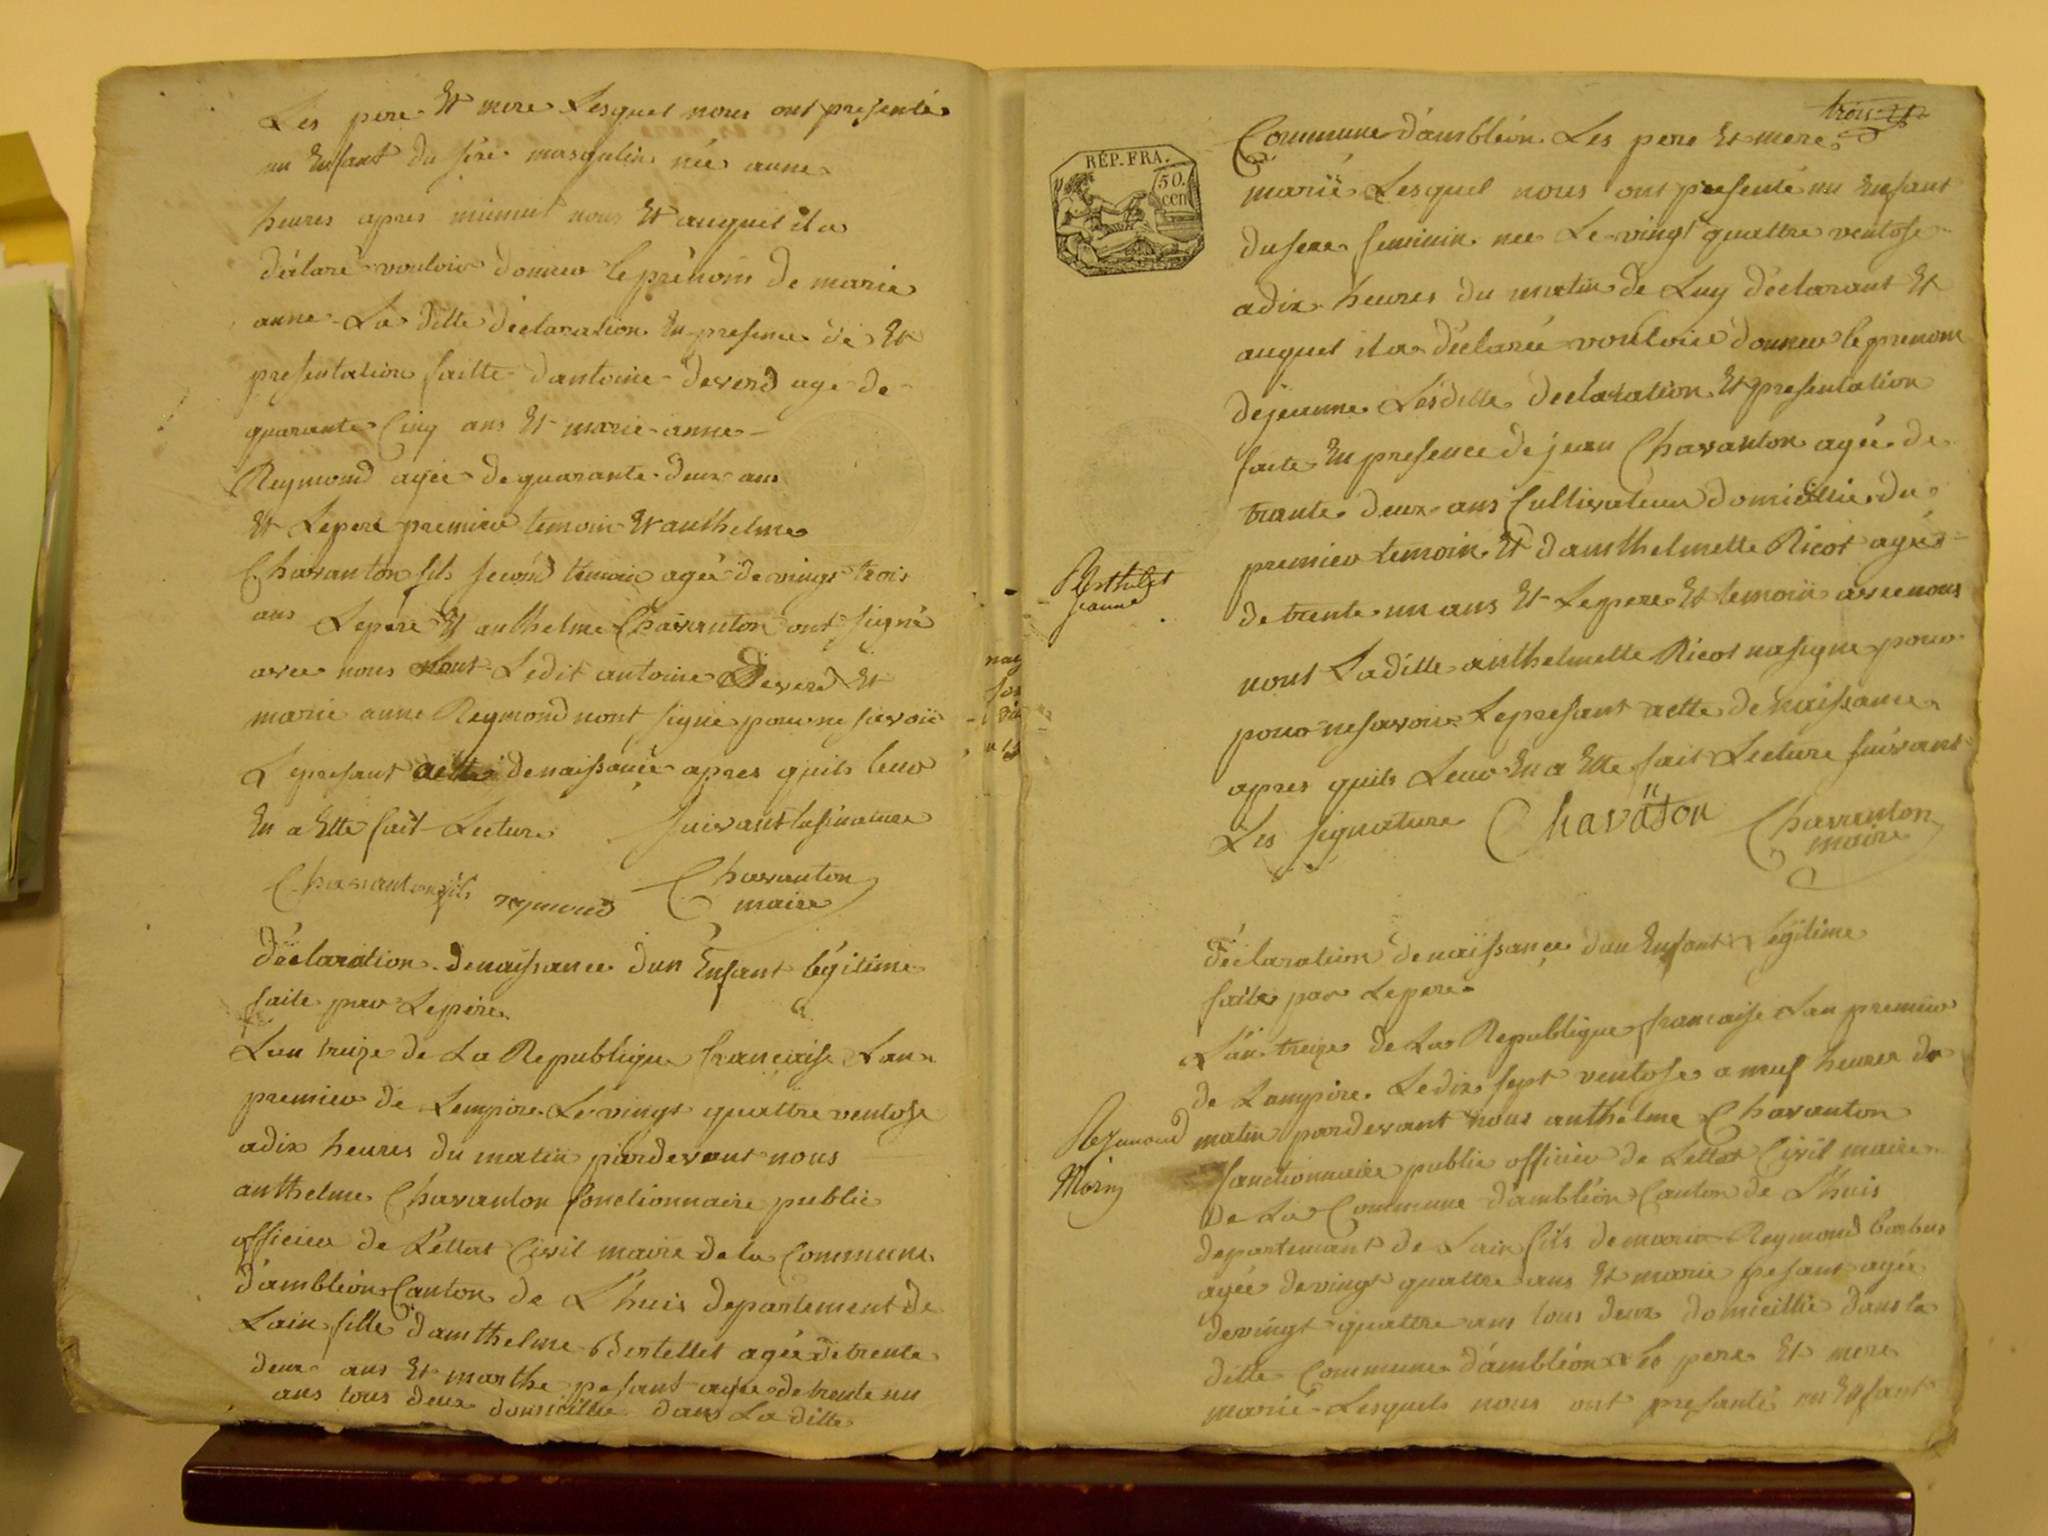 Les pere Et mere Lesquel nous ont presenté
un Enfant du sexe masqulin née aune
heures apres minuit nous Et auquel il a
déclaré vouloir donner le prénom de marie
anne La ditte déclaration En presence de Et
presentation faitte dantoine deverd agé de
quarante Cinq ans Et marie anne
Reymond agée de quarante deux ans
Et Lepere premier temoin Et anthelme
Chavanton fils second temoin agée de vingt trois
ans Lepére Et anthelme Chavanton ont signé
avec nous Ledit antoine Deverd Et
marie anne Reymond nont signé pour ne savoir
Lepresant acte denaissance apres quils leur
En a Ette fait Lecture suivant
Chavanton fils reymond Chavanton
maire
déclaration denaissance dun Enfant légitime
faite par Lepére
Lan treize de La Republique francaise Lan
premier de Lempire Le vingt quattre ventose
adix heures du matin pardevant nous
anthelme Chavanton fonctionnaire public
officier de Lettat Civil maire de la Commune
dambléon Canton de Lhuis departement de
Lain fille damthelme Bertellet agée de trente
deux ans Et marthe pesant agée de trente un
ans tous deux domicillie dans La ditte
trois
RÉP. FRA.
50.
cen
Commune dambléon Les pere Et mere
marié Lesquel nous ont presenté un Enfant
du sexe feminin nee Le vingt quattre ventose
adix heures du matin de Luy déclarant Et
auquel il a déclarée vouloir donner le prenom
dejeanne Lesditte déclaration Et presentation
faite En presence de jean Chavanton agée de
trante deux ans Cultivateur domicillié du
premier temoin Et damthelmette Ricot agée
de trente un ans Et Lepere Et temoin avec nous
nont Laditte anthelmette Ricot nasigne pour
pour nesavoir Lepresant actte de naissance
apres quils Leur En a Ette fait Lecture suivant
Les signature Chaväton Chavanton
maire
Berthelet
jeanne
déclaration de naissance dun Enfant Légitime
faite par Lepere
Lan treize de La Republique francaise Lan premier
de Lampire Le dix sept ventose a neuf heures du
matin pardevant nous anthelme Chavanton
fonctionnaire public officier de Lettat Civil maire
de La Commune dambléon Canton de Lhuis
departement de Lain fils de marin Reymond barbus
agée de vingt quattre ans Et marie pesant agée
devingt quattre ans tous deux domicillié dans la
ditte Commune dambléon Les pere Et mere
marié Lesquels nous ont presanté un Enfant
Reymond
Marin